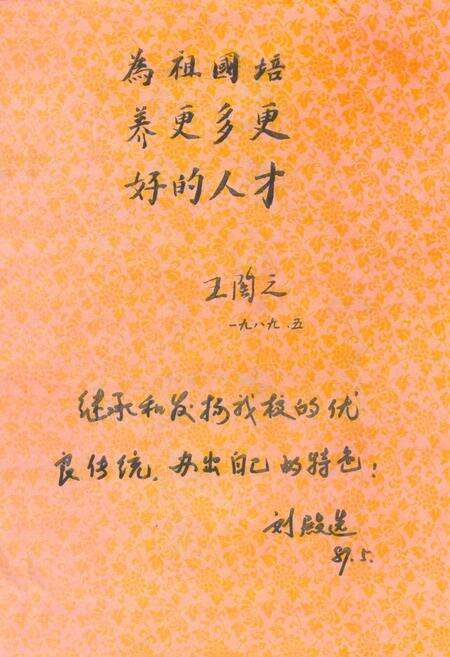 為祖國培
养更多更
好的人才
王陶之
一九八九.五
继承和发扬我校的优
良传统，办出自己的特色！
刘殿选
89.5.